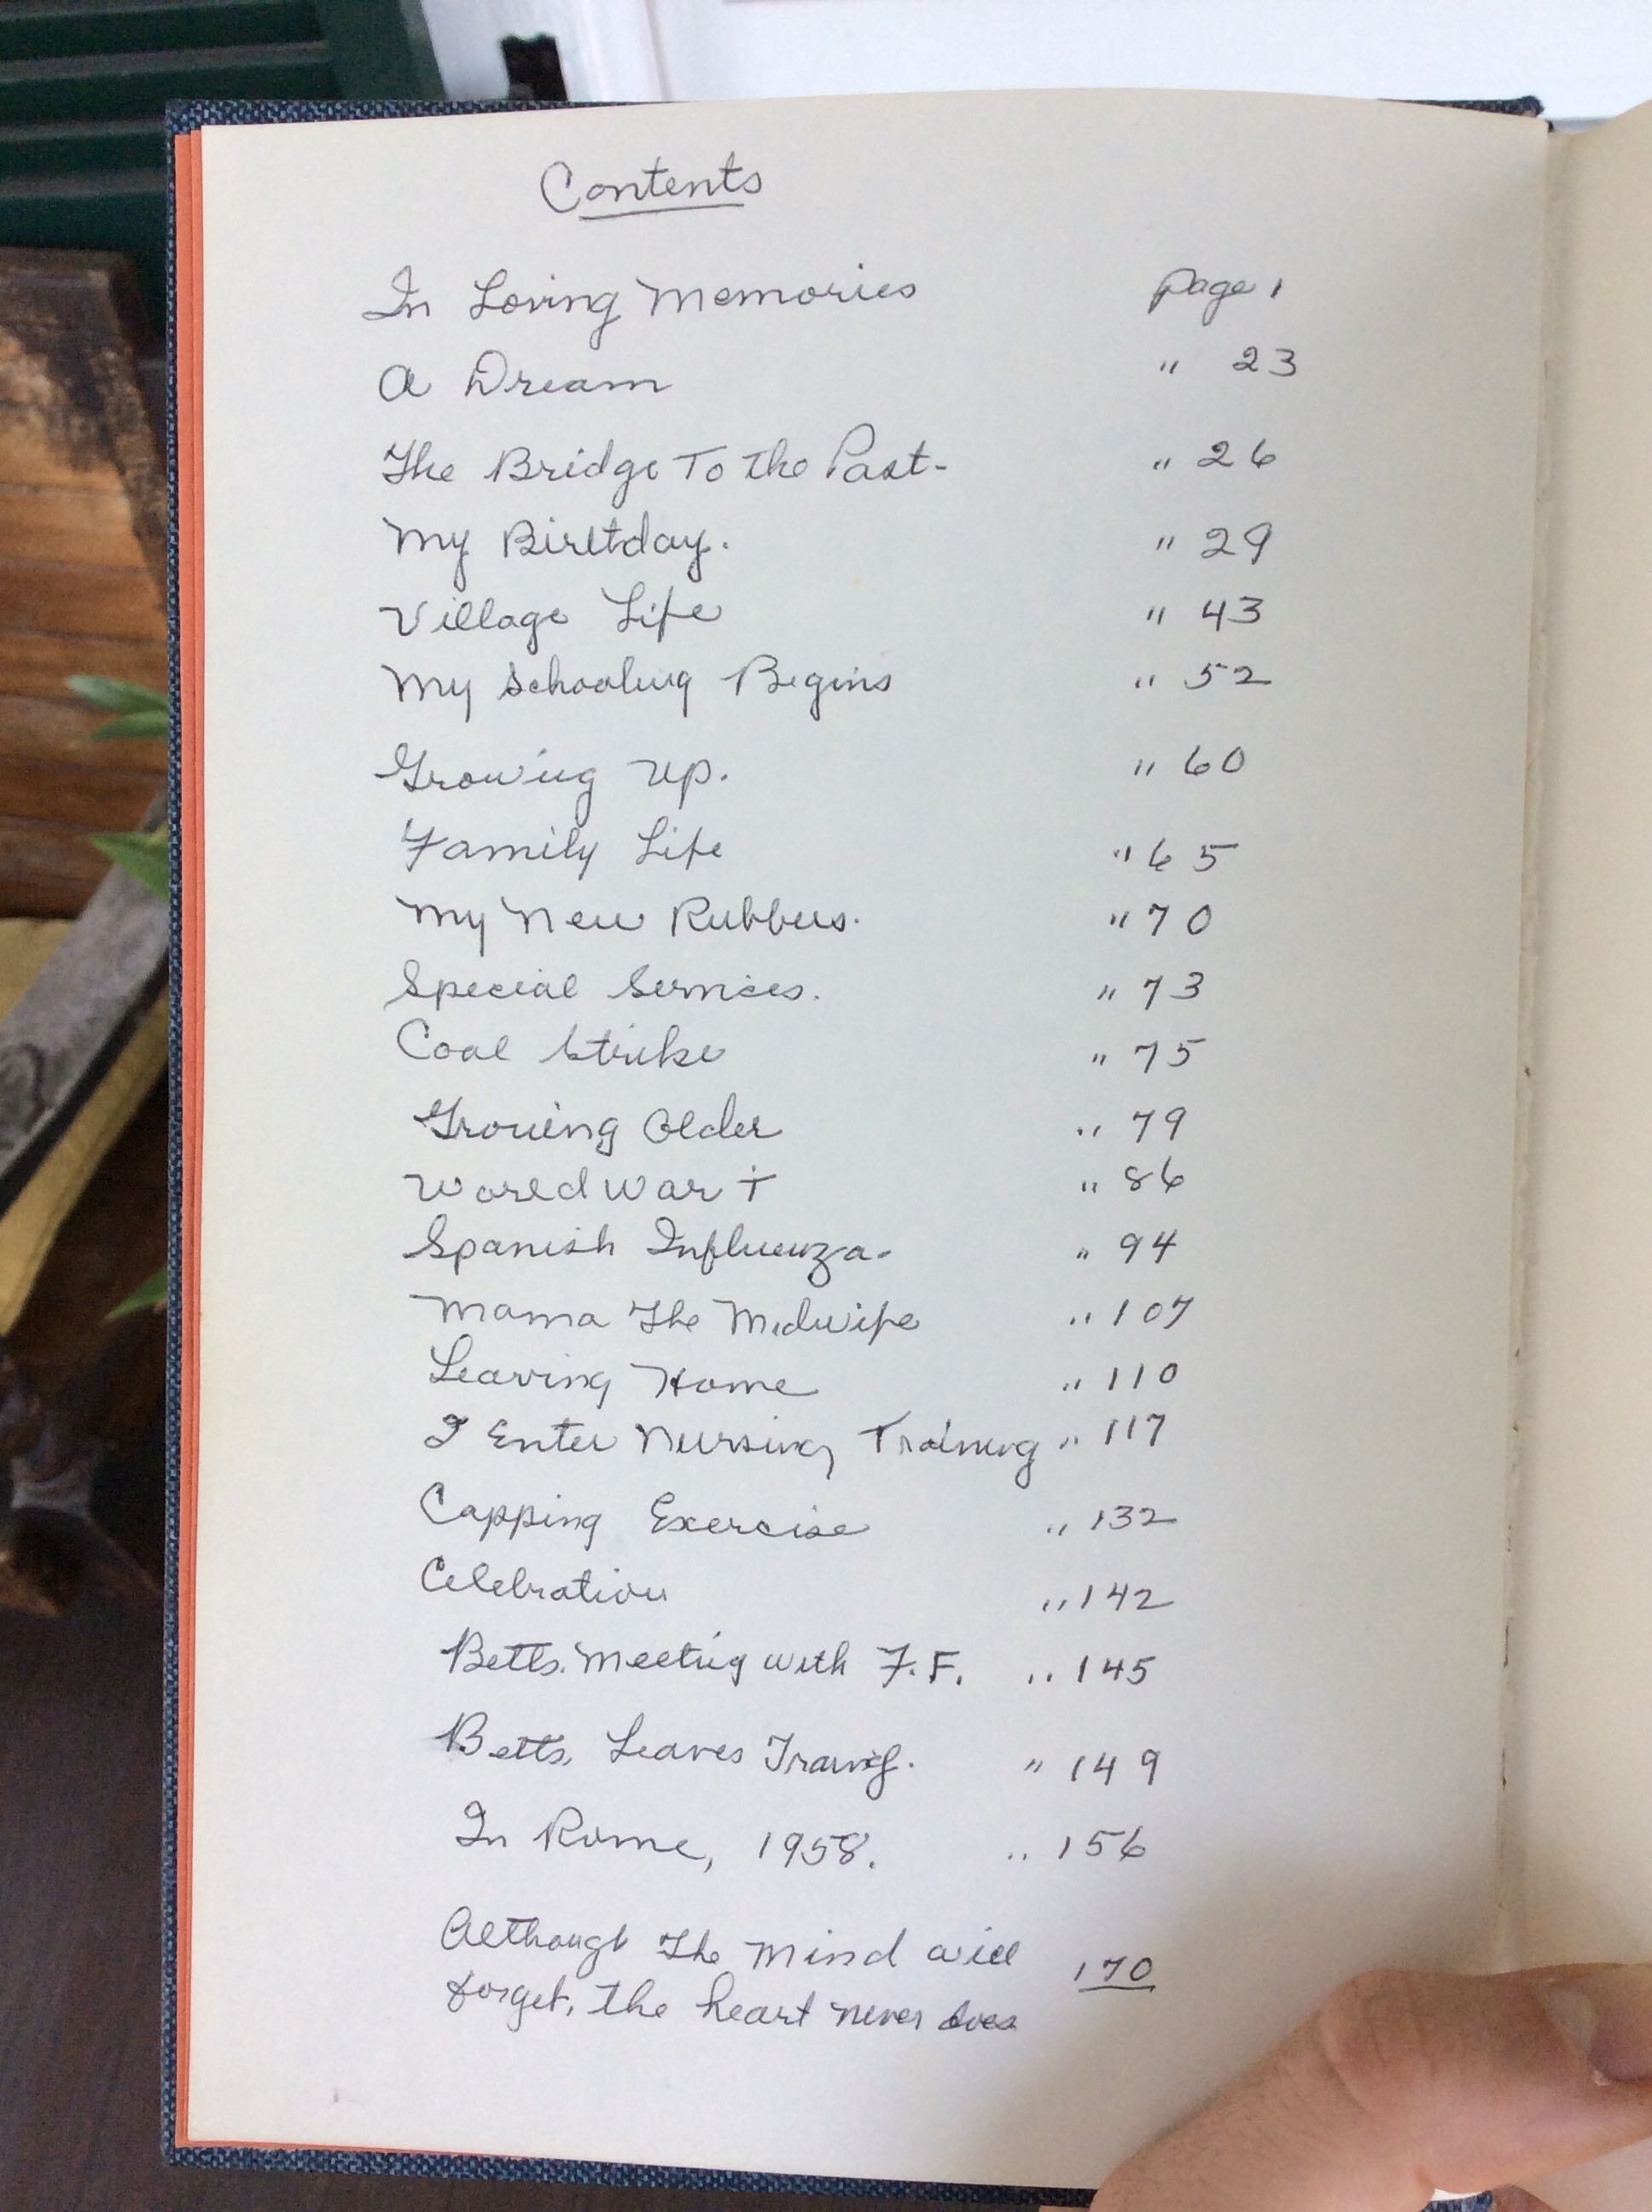 Contents
In Loving Memories page 1
A Dream " 23
The Bridge To the Past- " 26
My Birthday. " 29
Village Life " 43
My Schooling Begins " 52
Growing up. " 60
Family Life " 65
My New Rubbers. " 70
Special Services. " 73
Coal Strike " 75
Growing Older " 79
World War I " 86
Spanish Influenza. " 94
Mama The Midwife " 107
Leaving Home " 110
I Enter Nursing Training " 117
Capping Exercise " 132
Celebration " 142
Betts. Meeting with F.F. " 145
Betts. Leaves Traing. " 149
In Rome, 1958. " 156
Although The Mind will
forget, the heart never does 170